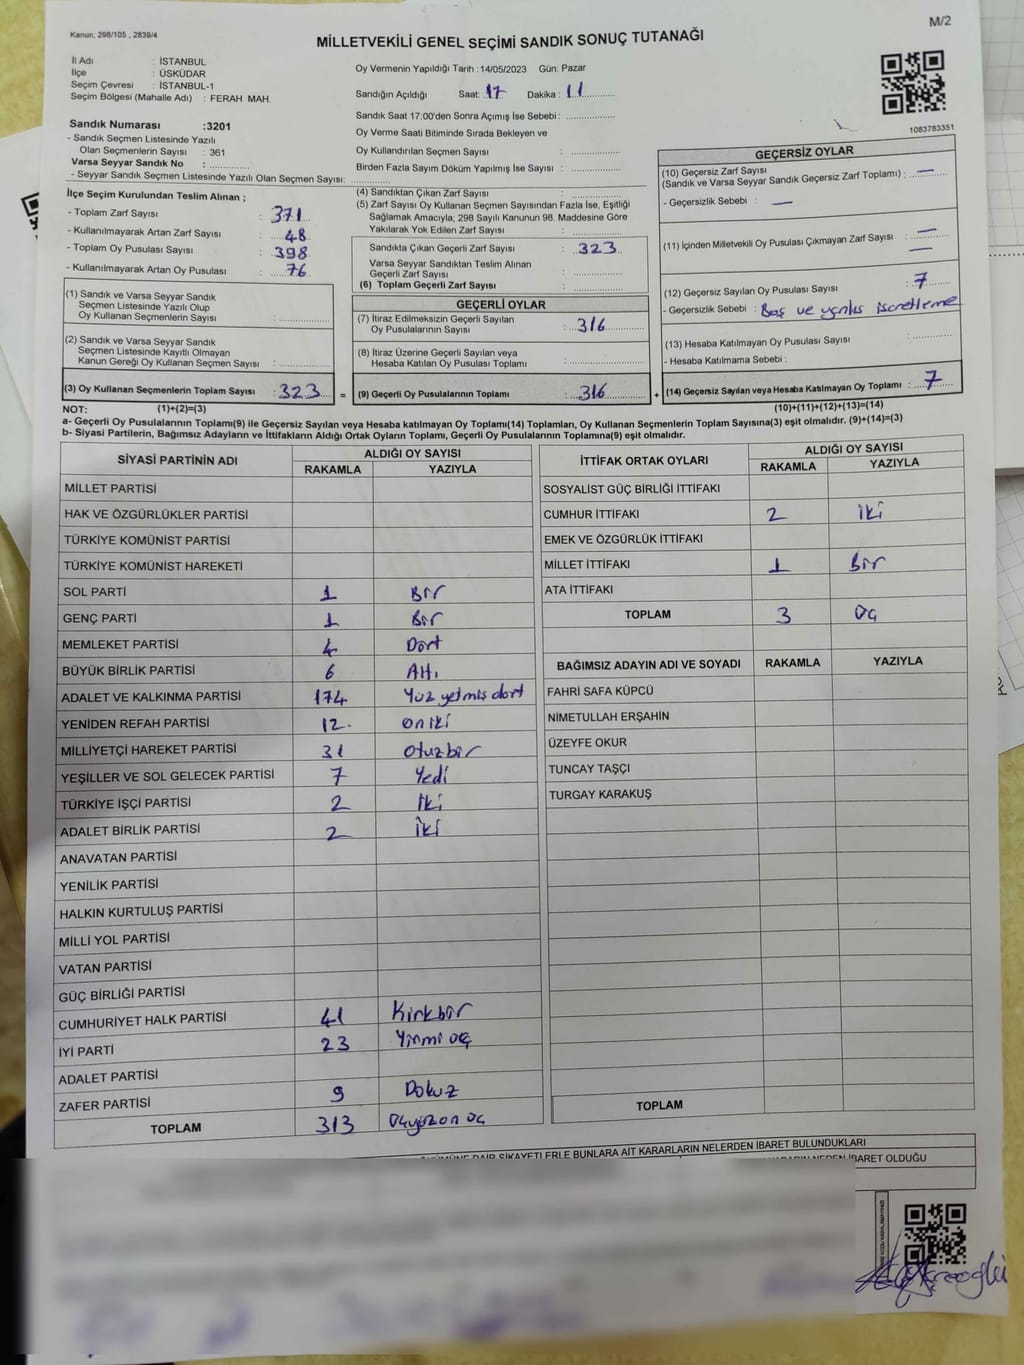 Kanun; 298/105 , 2839/4
M/2
MİLLETVEKİLİ GENEL SEÇİMİ SANDIK SONUÇ TUTANAĞI
İl Adı : İSTANBUL
İlçe : ÜSKÜDAR
Seçim Çevresi : İSTANBUL-1
Seçim Bölgesi (Mahalle Adı) : FERAH MAH.
Oy Vermenin Yapıldığı Tarih :14/05/2023 Gün: Pazar
Sandığın Açıldığı Saat: 17 Dakika : 11
Sandık Saat 17:00'den Sonra Açımış İse Sebebi :
Oy Verme Saati Bitiminde Sırada Bekleyen ve
Oy Kullandırılan Seçmen Sayısı :
Birden Fazla Sayım Döküm Yapılmış İse Sayısı :
1083783351
Sandık Numarası :3201
- Sandık Seçmen Listesinde Yazılı
Olan Seçmenlerin Sayısı : 361
Varsa Seyyar Sandık No :
- Seyyar Sandık Seçmen Listesinde Yazılı Olan Seçmen Sayısı:
İlçe Seçim Kurulundan Teslim Alınan ;
- Toplam Zarf Sayısı : 371
- Kullanılmayarak Artan Zarf Sayısı : 48
- Toplam Oy Pusulası Sayısı : 398
- Kullanılmayarak Artan Oy Pusulası : 76
(1) Sandık ve Varsa Seyyar Sandık
Seçmen Listesinde Yazılı Olup
Oy Kullanan Seçmenlerin Sayısı :
(2) Sandık ve Varsa Seyyar Sandık
Seçmen Listesinde Kayıtlı Olmayan
Kanun Gereği Oy Kullanan Seçmen Sayısı :
(3) Oy Kullanan Seçmenlerin Toplam Sayısı : 323 =
(4) Sandıktan Çıkan Zarf Sayısı :
(5) Zarf Sayısı Oy Kullanan Seçmen Sayısından Fazla İse, Eşitliği
Sağlamak Amacıyla; 298 Sayılı Kanunun 98. Maddesine Göre
Yakılarak Yok Edilen Zarf Sayısı :
Sandıkta Çıkan Geçerli Zarf Sayısı : 323
Varsa Seyyar Sandıktan Teslim Alınan
Geçerli Zarf Sayısı :
(6) Toplam Geçerli Zarf Sayısı :
GEÇERLİ OYLAR
(7) İtiraz Edilmeksizin Geçerli Sayılan
Oy Pusulalarının Sayısı : 316
(8) İtiraz Üzerine Geçerli Sayılan veya
Hesaba Katılan Oy Pusulası Toplamı :
(9) Geçerli Oy Pusulalarının Toplamı : 316 +
GEÇERSİZ OYLAR
(10) Geçersiz Zarf Sayısı
(Sandık ve Varsa Seyyar Sandık Geçersiz Zarf Toplamı) : —
- Geçersizlik Sebebi : —
(11) İçinden Milletvekili Oy Pusulası Çıkmayan Zarf Sayısı : —
—
(12) Geçersiz Sayılan Oy Pusulası Sayısı : 7
- Geçersizlik Sebebi : Boş ve yanlış işaretleme
(13) Hesaba Katılmayan Oy Pusulası Sayısı :
- Hesaba Katılmama Sebebi :
(14) Geçersiz Sayılan veya Hesaba Katılmayan Oy Toplamı : 7
NOT: (1)+(2)=(3)
(10)+(11)+(12)+(13)=(14)
a- Geçerli Oy Pusulalarının Toplamı(9) ile Geçersiz Sayılan veya Hesaba katılmayan Oy Toplamı(14) Toplamları, Oy Kullanan Seçmenlerin Toplam Sayısına(3) eşit olmalıdır. (9)+(14)=(3)
b- Siyasi Partilerin, Bağımsız Adayların ve İttifakların Aldığı Ortak Oyların Toplamı, Geçerli Oy Pusulalarının Toplamına(9) eşit olmalıdır.
SİYASİ PARTİNİN ADI ALDIĞI OY SAYISI
RAKAMLA YAZIYLA
MİLLET PARTİSİ
HAK VE ÖZGÜRLÜKLER PARTİSİ
TÜRKİYE KOMÜNİST PARTİSİ
TÜRKİYE KOMÜNİST HAREKETİ
SOL PARTİ 1 Bir
GENÇ PARTİ 1 Bir
MEMLEKET PARTİSİ 4 Dört
BÜYÜK BİRLİK PARTİSİ 6 Altı
ADALET VE KALKINMA PARTİSİ 174 Yüz yetmiş dört
YENİDEN REFAH PARTİSİ 12 on iki
MİLLİYETÇİ HAREKET PARTİSİ 31 otuzbir
YEŞİLLER VE SOL GELECEK PARTİSİ 7 Yedi
TÜRKİYE İŞÇİ PARTİSİ 2 İki
ADALET BİRLİK PARTİSİ 2 İki
ANAVATAN PARTİSİ
YENİLİK PARTİSİ
HALKIN KURTULUŞ PARTİSİ
MİLLİ YOL PARTİSİ
VATAN PARTİSİ
GÜÇ BİRLİĞİ PARTİSİ
CUMHURİYET HALK PARTİSİ 41 Kırkbir
İYİ PARTİ 23 Yirmi üç
ADALET PARTİSİ
ZAFER PARTİSİ 9 Dokuz
TOPLAM 313 Üçyüzon üç
İTTİFAK ORTAK OYLARI ALDIĞI OY SAYISI
RAKAMLA YAZIYLA
SOSYALİST GÜÇ BİRLİĞİ İTTİFAKI
CUMHUR İTTİFAKI 2 İki
EMEK VE ÖZGÜRLÜK İTTİFAKI
MİLLET İTTİFAKI 1 Bir
ATA İTTİFAKI
TOPLAM 3 Üç
BAĞIMSIZ ADAYIN ADI VE SOYADI RAKAMLA YAZIYLA
FAHRİ SAFA KÜPCÜ
NİMETULLAH ERŞAHİN
ÜZEYFE OKUR
TUNCAY TAŞÇI
TURGAY KARAKUŞ
TOPLAM
DAİR ŞİKAYETLERLE BUNLARA AİT KARARLARIN NELERDEN İBARET BULUNDUKLARI
NEDEN İBARET OLDUĞU